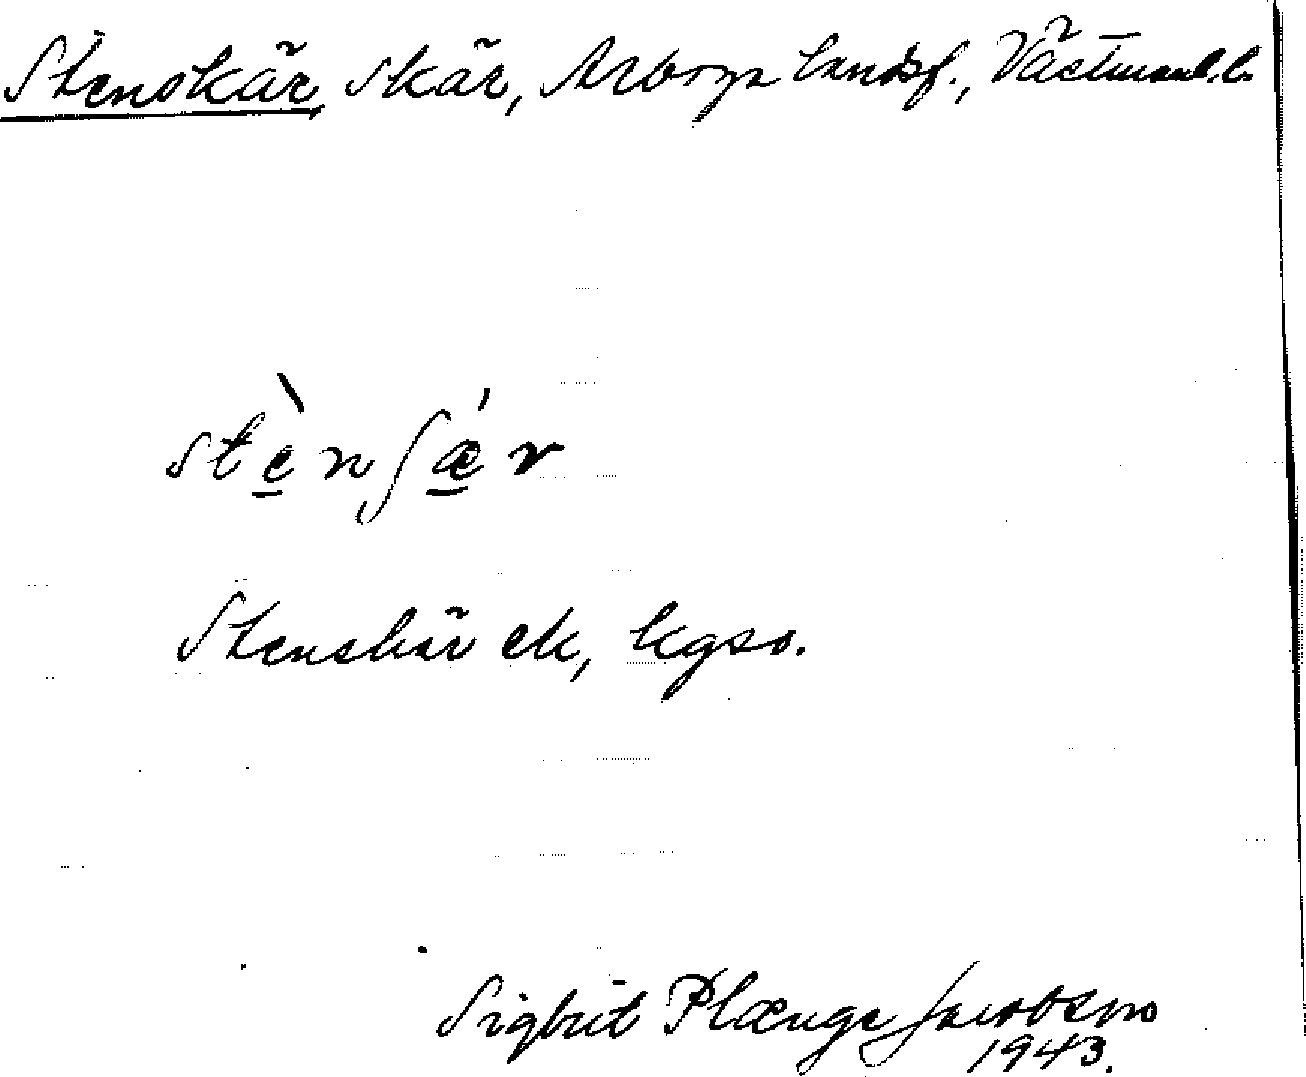 Stenskär, skär, Arboga landsf., Västmanl. l.
stè̱nʃǽ̱r
Stenskär ek, kgso.
Sigbrit Plænge Jacobson
1943.